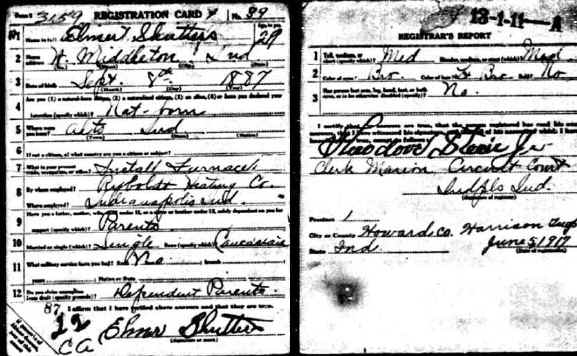 Form 1 3159 REGISTRATION CARD No. 89
1 Name in full Elmer Shutters Age in yrs 29
2 N. Middleton Ind
3 Date of birth Sept 8th 1887
(Month) (Day) (Year)
4 Are you (1) a natural-born citizen, (2) a naturalized citizen, (3) an alien, (4) or have you declared your
intention (specify which)? Nat-born
5 Where were you born? Ind
(Town) (State) (Nation)
6 If not a citizen, of what country are you a citizen or subject?
7 What is your present trade, occupation, or office? Install Furnaces
8 By whom employed? Rybolt Heating Co.
Where employed? Indianapolis Ind.
9 Have you a father, mother, wife, child under 12, or a sister or brother under 12, solely dependent on you for
support (specify which)? Parents
10 Married or single (which)? Single Race (specify which)? Caucasian
11 What military service have you had? Rank No branch
years Nation or State
12 Do you claim exemption from draft (specify grounds)? Dependent Parents
I affirm that I have verified above answers and that they are true.
87
12
CA
Elmer Shutters
(Signature or mark)
13-1-11-A
REGISTRAR'S REPORT
1 Tall, medium, or short (specify which)? Med Slender, medium, or stout (which)? Med
2 Color of eyes Bro Color of hair Bro Bald? No
3 Has person lost arm, leg, hand, foot, or both eyes, or is he otherwise disabled (specify)? No.
Clerk Marion Circuit Court
Indpls Ind.
(Signature of registrar)
Precinct 1
City or County Howard Co. Harrison Twp
State Ind June 5, 1917
(Date of registration)